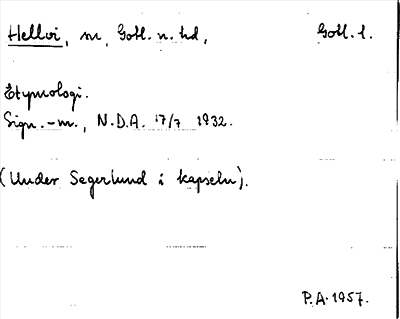 Hellvi, sn, Gotl. n. hd, Gotl. l.
Etymologi.
Sign. -m., N.D.A. 17/7 1932.
(Under Segerlund i kapseln).
P.A. 1957.